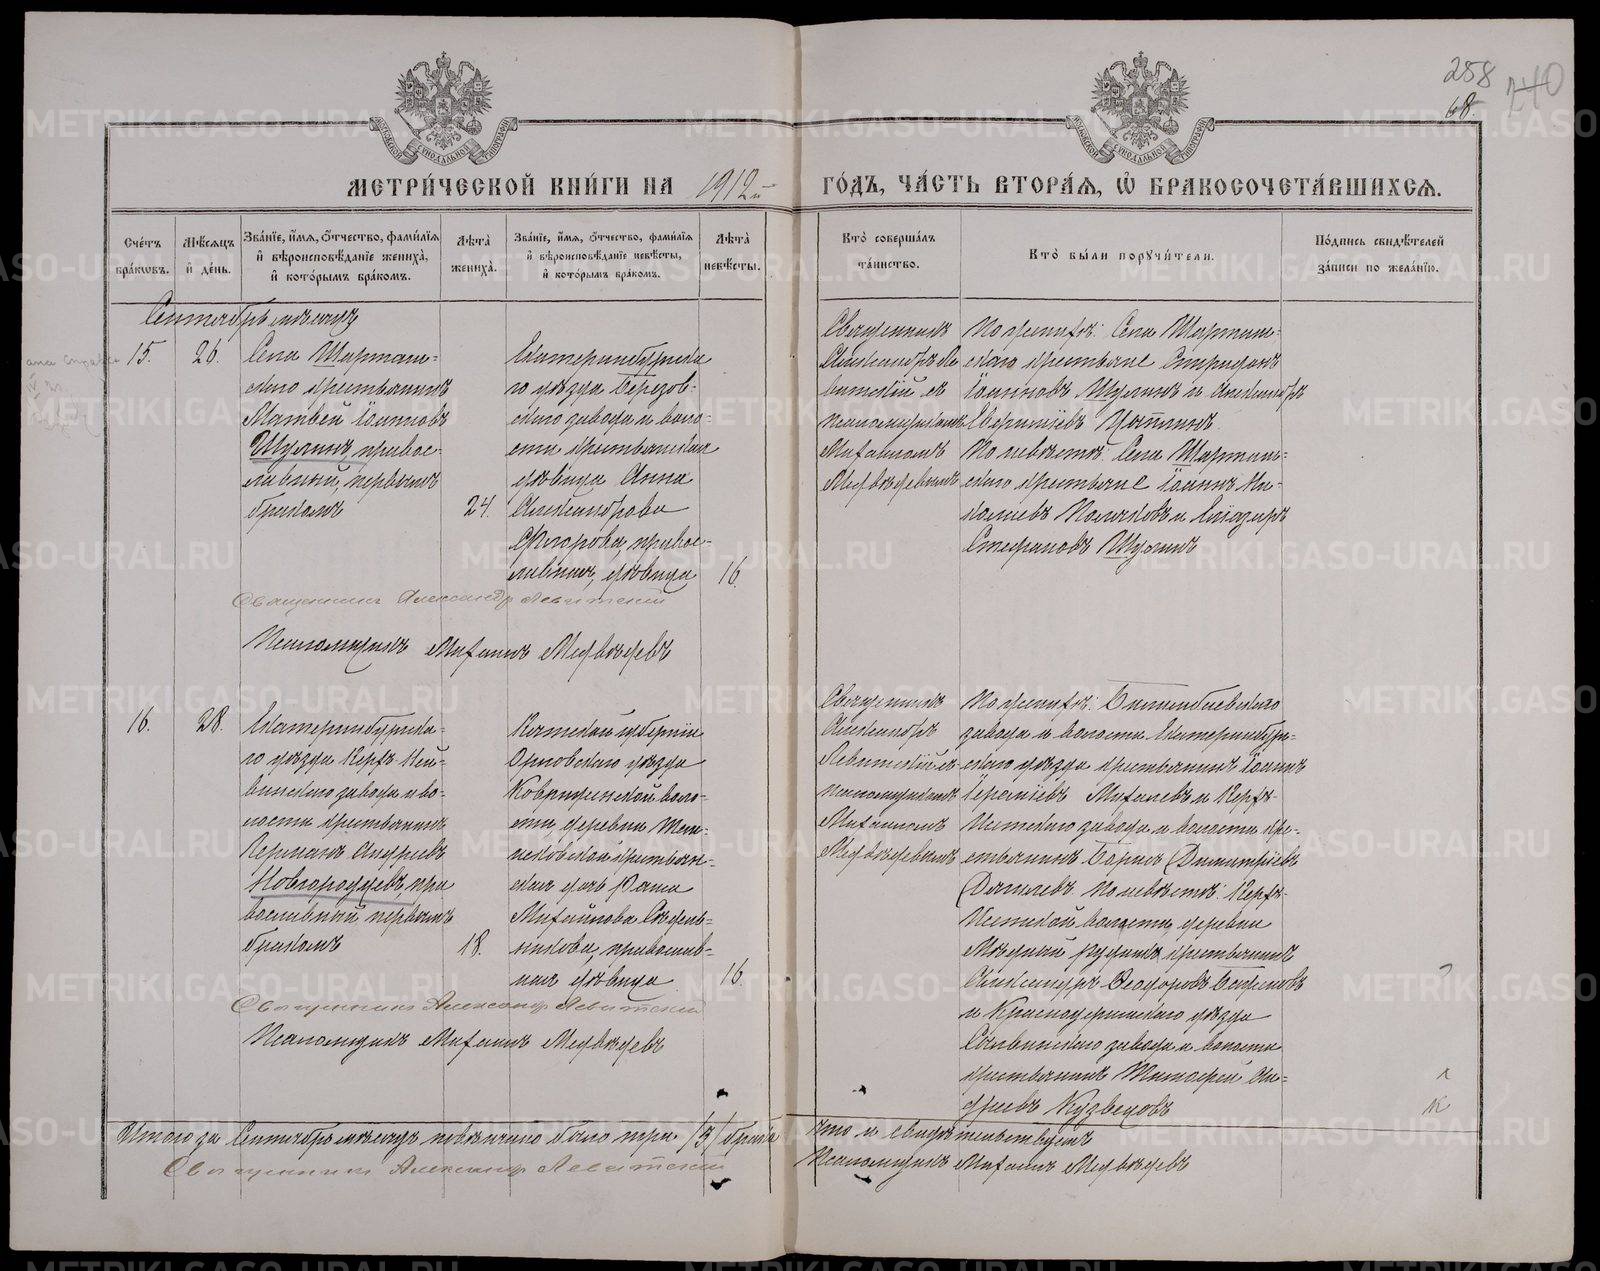 258
68.
240
МЕТРИ́ЧЕСКОЙ КНИ́ГИ НА 1912й ГО́ДЪ, ЧА́СТЬ ВТОРА́Ѧ, Ѽ БРАКОСОЧЕТА́ВШИХСѦ.
Сче́тъ бра́кѡвъ.
Мѣ́сѧцъ и҆ де́нь.
Зва́нїе, и҆́мѧ, ѻ҆́тчество, фами́лїѧ и҆ вѣроисповѣ́данїе жениха̀, и҆ кото́рымъ бра́комъ.
Лѣ́та̀ жениха̀.
Зва́нїе, и҆́мѧ, ѻ҆́тчество, фами́лїѧ и҆ вѣроисповѣ́данїе невѣ́сты, и҆ кото́рымъ бра́комъ.
Лѣ́та̀ невѣ́сты.
Кто̀ соверша́лъ та́инство.
Кто̀ бы́ли порꙋчи́тели.
По́дпись свидѣ́телей за́писи по жела́нїю.
Сентябрь мѣсяцъ
15.
26.
Села Шарташ-
скаго крестьянинъ
Матвей Іоанновъ
Шулинъ, правос-
лавный, первымъ
бракомъ
24.
Екатеринбургска
го уѣзда Березов-
скаго завода и воло-
сти крестьянская
дѣвица Анна
Александрова
правос-
лавная, дѣвица
16.
Священникъ
Александръ Ле
витскій съ
псаломщикомъ
Михаиломъ
Медвѣдевымъ
По женихѣ: Села Шарташ-
скаго крестьяне Спиридонъ
Іоанновъ Шулинъ и Александръ
По невѣстѣ: Села Шарташ-
скаго крестьяне Іоаннъ Ни-
колаевъ Поляковъ и Елеазаръ
Стефановъ Шулинъ
Священникъ Александр Левитский
Псаломщикъ Михаилъ Медвѣдевъ
16.
28.
Екатеринбургска-
го уѣзда Верхъ-Ней-
винскаго завода и во-
лости крестьянинъ
Германъ Андреевъ
Новгородцевъ, пра
вославный, первымъ
бракомъ
18.
Вятской губерніи
Орловскаго уѣзда
воло-
сти, деревни
крестьян-
ская дочь
Михайлова
православ-
ная дѣвица
16.
Священникъ
Александръ
Левитскій съ
псаломщикомъ
Михаиломъ
Медвѣдевымъ
По женихѣ: Билимбаевскаго
завода и волости Екатеринбург-
скаго уѣзда крестьянинъ Іоаннъ
и Верхъ-
Исетскаго завода и волости кре-
стьянинъ Борисъ Димитріевъ
По невѣстѣ: Верхъ-
Исетской волости, деревни
Мѣдный рудникъ крестьянинъ
Александръ Феодоровъ
и Красноуфимскаго уѣзда
завода и волости
крестьянинъ Тимофей Ан-
дреевъ Кузнецовъ
Священникъ Александр Левитский
Псаломщикъ Михаилъ Медвѣдевъ
Итого за Сентябрь мѣсяцъ повѣнчано было три /3/ брака
что и свидѣтельствуемъ
Священникъ Александр Левитский
Псаломщикъ Михаилъ Медвѣдевъ
METRIKI.GASO-URAL.RU